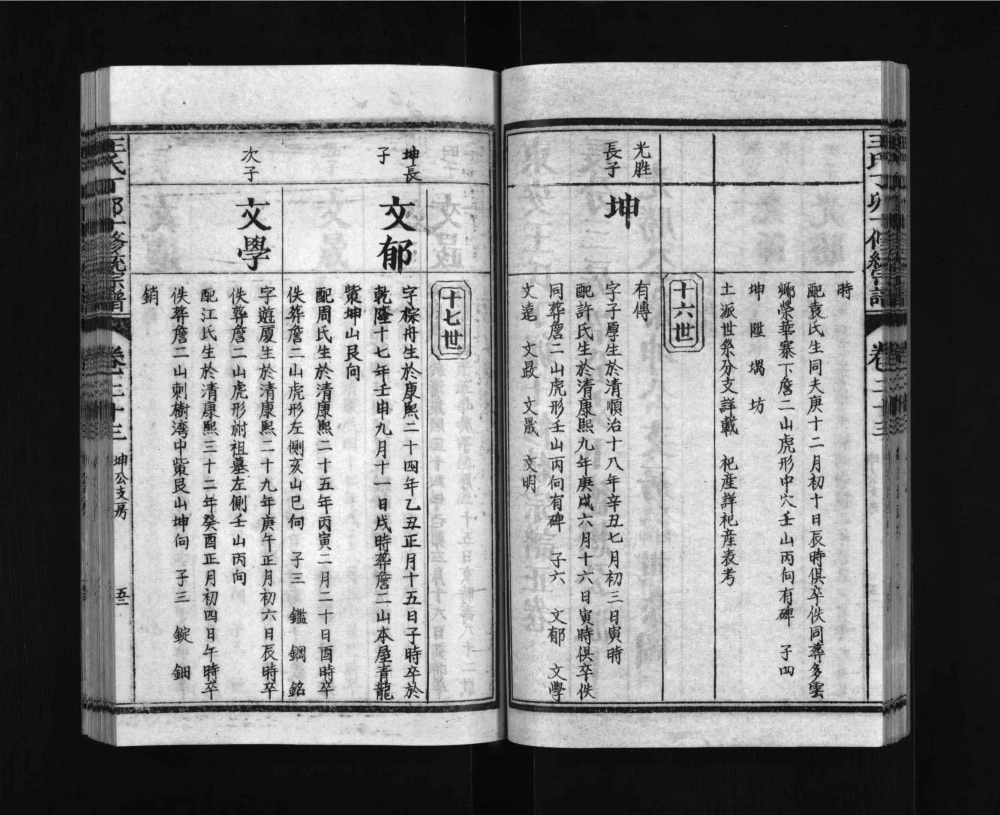 時
配袁氏生同夫庚十二月初十日辰時俱卒佚同葬多雲
鄉榮華寨下詹二山虎形中穴壬山丙向有碑 子四
坤 陞 堣 坊
土派世系分支詳載 祀產詳祀產表考
十六世
光胜長子
坤
有傳
字子厚生於清順治十八年辛丑七月初三日寅時
配許氏生於清康熙九年庚戌六月十六日寅時俱卒佚
同葬詹二山虎形壬山丙向有碑 子六 文郁 文學
文遠 文晸 文晟 文明
王氏丁卯修統宗譜
卷二十三
十七世
坤長子
文郁
字棕舟生於康熙二十四年乙丑正月十五日子時卒於
乾隆十七年壬申九月十一日戌時葬詹二山本屋青龍
觜坤山艮向
配周氏生於清康熙二十五年丙寅二月二十日酉時卒
佚葬詹二山虎形左側亥山巳向 子三 鑑 鋼 銘
次子
文學
字遊厦生於清康熙二十九年庚午正月初六日辰時卒
佚葬詹二山虎形祔祖墓左側壬山丙向
配江氏生於清康熙三十二年癸酉正月初四日午時卒
佚葬詹二山刺樹湾中觜艮山坤向 子三 錠 鈿
銷
王氏丁卯修統宗譜
卷二十三
坤公支房